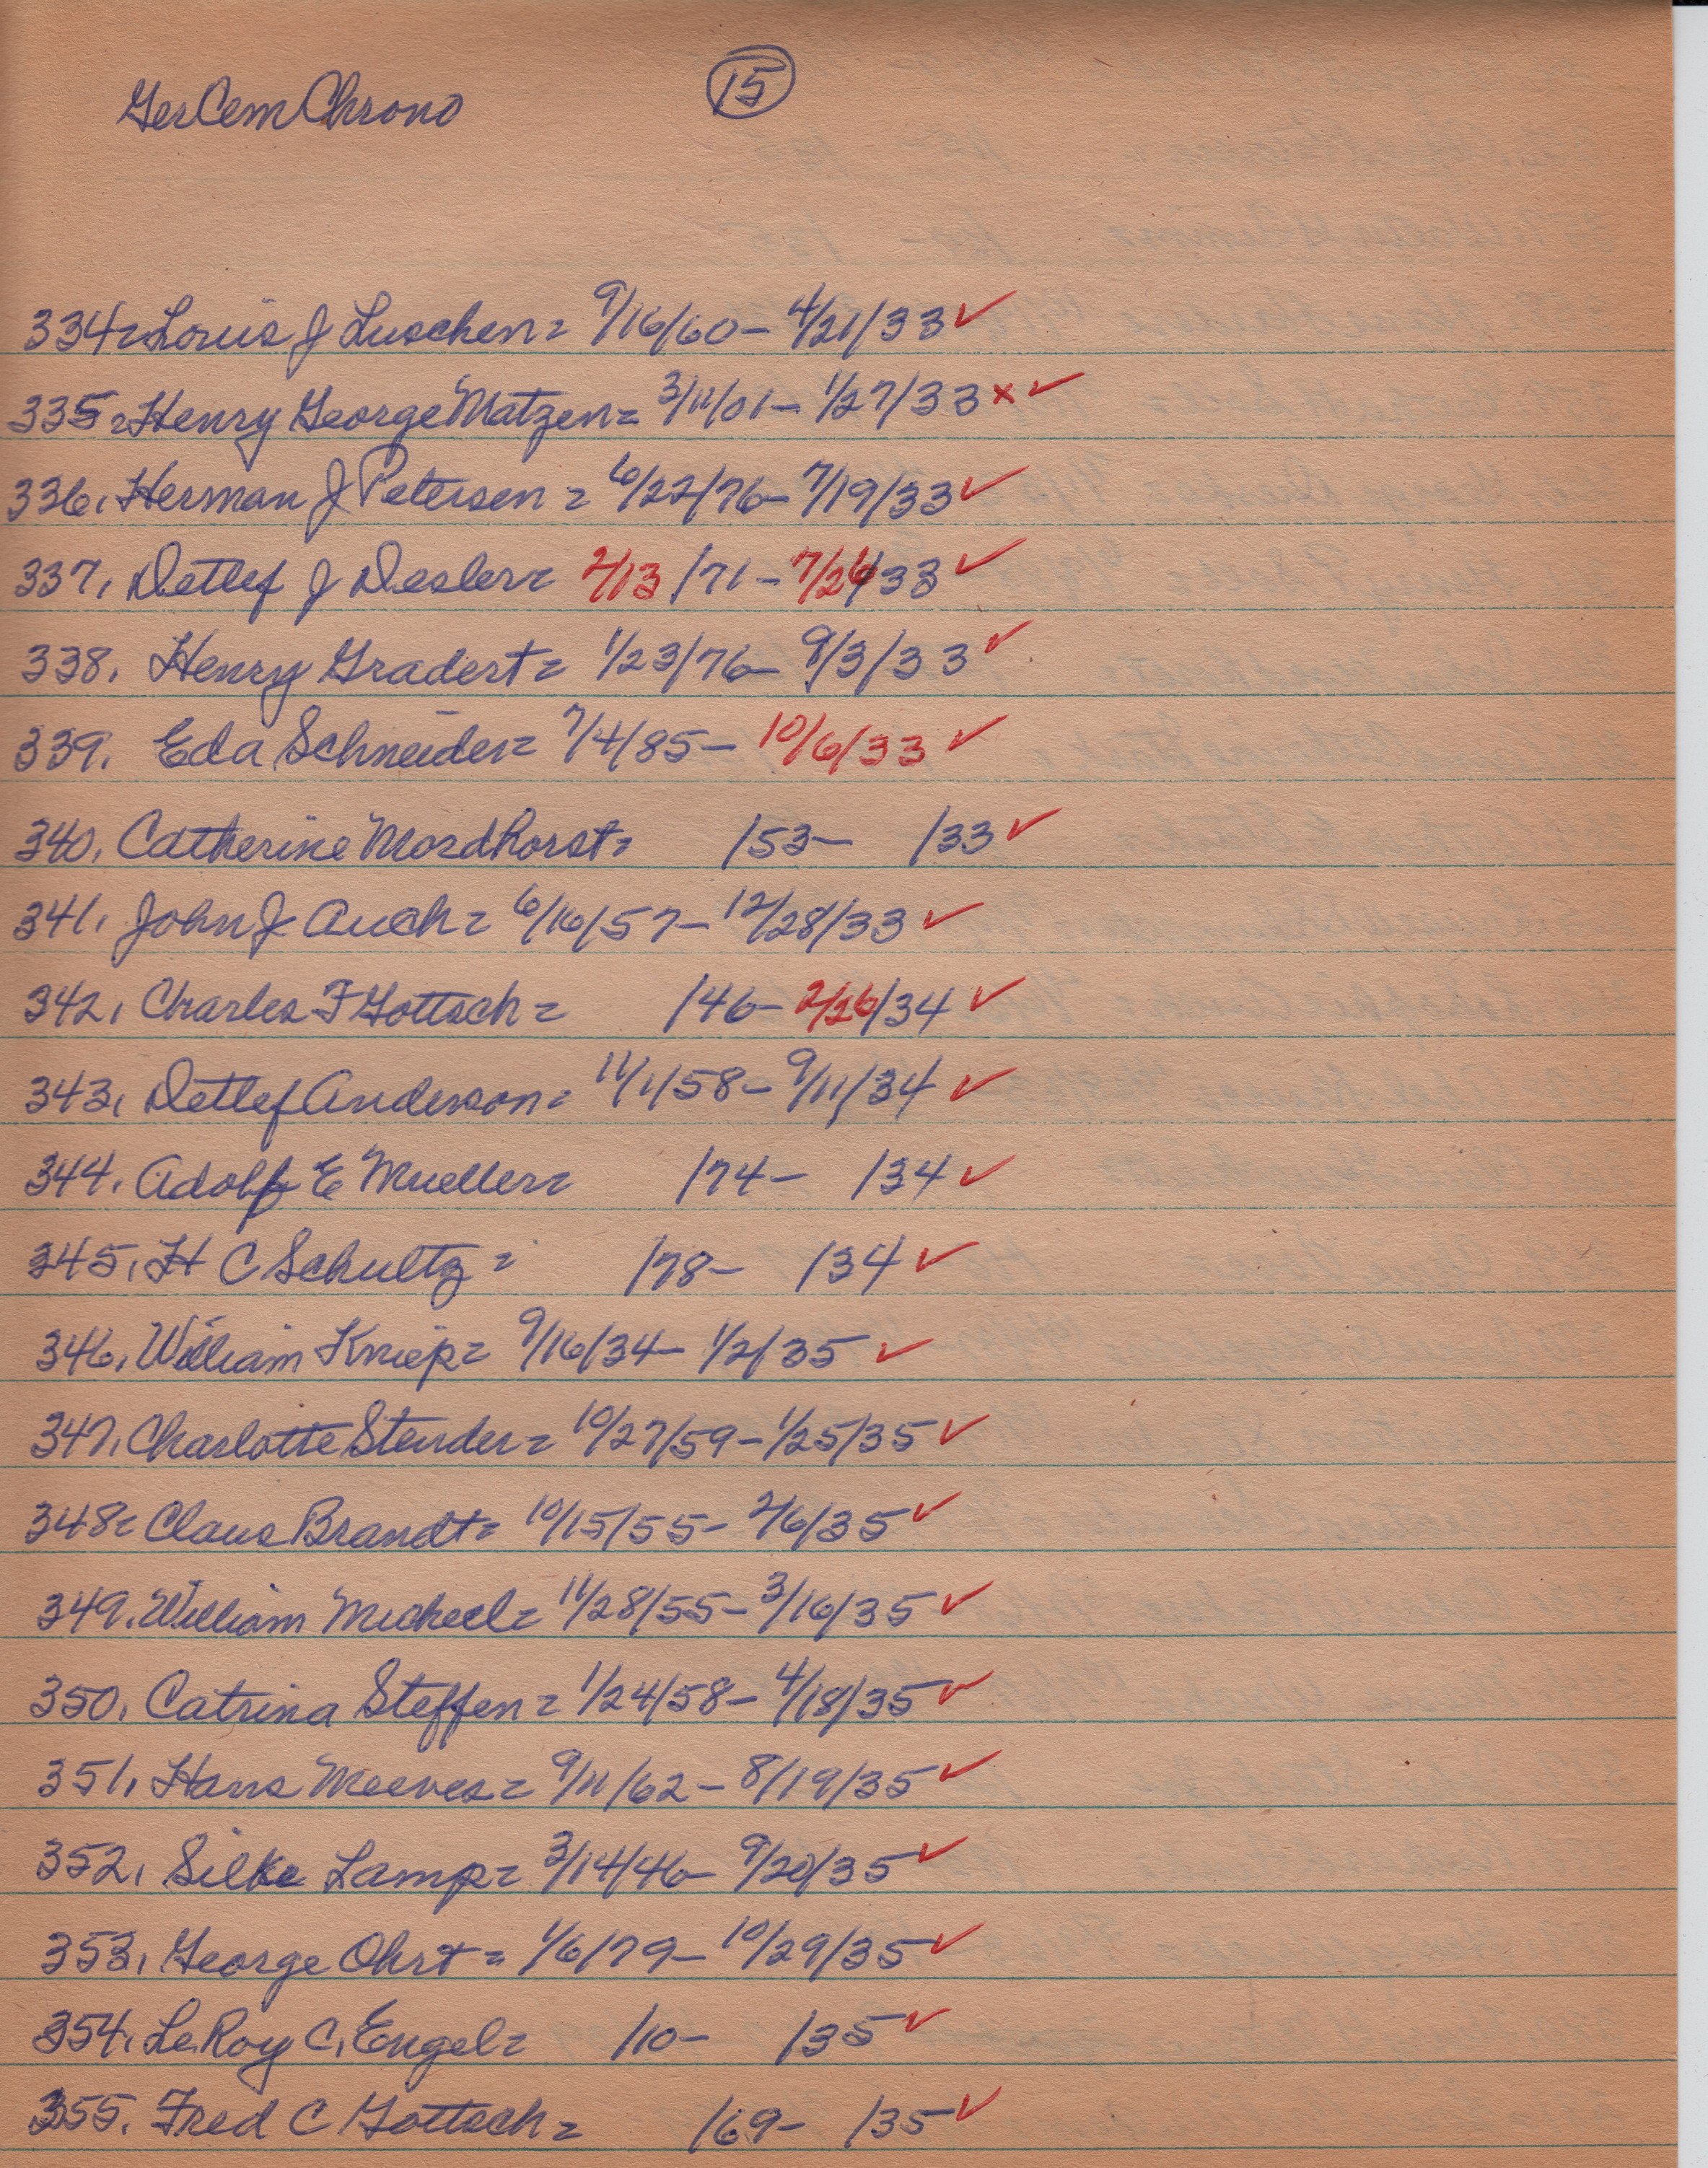 GerCemChrono 15
334= Louis J Luschen= 9/16/60- 4/21/33 ✓
335= Henry George Matzen= 3/11/01- 1/27/33 x ✓
336. Herman J Petersen= 6/22/76- 7/19/33 ✓
337. Detlef J Desler= 2/13/71- 7/26/33 ✓
338. Henry Gradert= 1/23/76- 9/3/33 ✓
339. Eda Schneider= 7/4/85- 10/6/33 ✓
340. Catherine Mordhorst= /53- /33 ✓
341. John J Auch= 6/16/57- 12/28/33 ✓
342. Charles F Gottsch= /46- 2/26/34 ✓
343. Detlef Anderson= 11/1/58- 9/11/34 ✓
344. Adolf E Mueller= /74- /34 ✓
345. H C Schultz= /78- /34 ✓
346. William Kniep= 9/16/34- 1/2/35 ✓
347. Charlotte Stender= 10/27/59- 1/25/35 ✓
348= Claus Brandt= 10/15/55- 2/6/35 ✓
349. William Micheel= 11/28/55- 3/16/35 ✓
350. Catrina Steffen= 1/24/58- 4/18/35 ✓
351. Hans Meeves= 9/11/62- 8/19/35 ✓
352. Silke Lamp= 3/14/46- 9/20/35 ✓
353. George Ohrt= 1/6/79- 10/29/35 ✓
354. LeRoy C. Engel= /10- /35 ✓
355. Fred C Gottsch= /69- /35 ✓